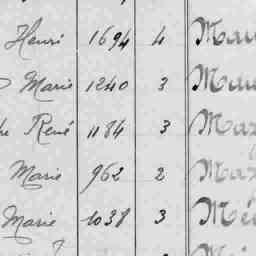 Henri 1694 4 Mau
Marie 1240 3 Mau
René 1184 3 Max
Marie 962 2 Max
Marie 1038 3 Mé